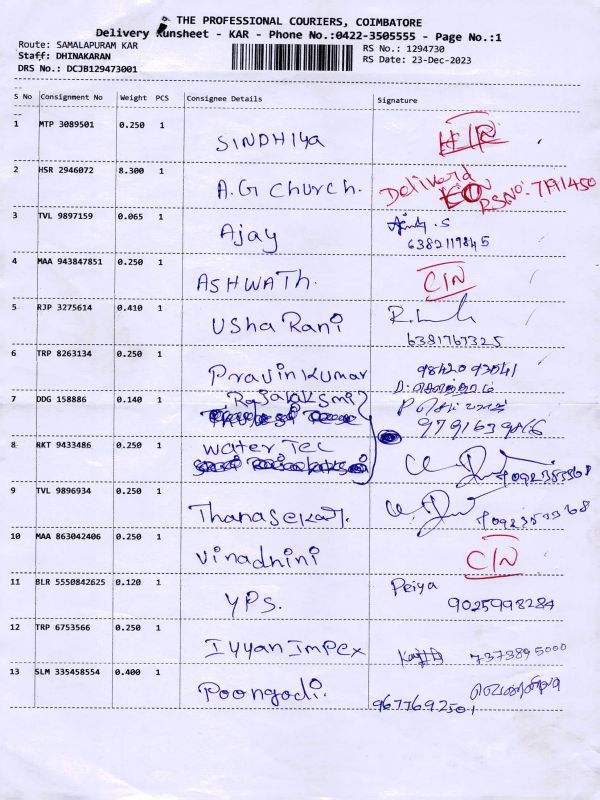 THE PROFESSIONAL COURIERS, COIMBATORE
Delivery Runsheet - KAR - Phone No.:0422-3505555 - Page No.:1
Route: SAMALAPURAM KAR RS No.: 1294730
Staff: DHINAKARAN RS Date: 23-Dec-2023
DRS No.: DCJB129473001
S No Consignment No Weight PCS Consignee Details Signature
1 MTP 3089501 0.250 1 SINDHIYA
2 HSR 2946072 8.300 1 A.G Church. Deliverd
RSNO: 7191450
3 TVL 9897159 0.065 1 Ajay
6382119845
4 MAA 943847851 0.250 1 ASHWATH. C/N
5 RJP 3275614 0.410 1 USha Rani
6381767325
6 TRP 8263134 0.250 1 PravinKumar
7 DDG 158886 0.140 1 Rajalaksmi
8 RKT 9433486 0.250 1 Water Tec
9 TVL 9896934 0.250 1 Thanasekar.
10 MAA 863042406 0.250 1 Vinadhini C/N
11 BLR 5550842625 0.120 1 YPS. Periya
9025998284
12 TRP 6753566 0.250 1 Iyyan Impex 7373895000
13 SLM 335458554 0.400 1 Poongodi.
9677692501